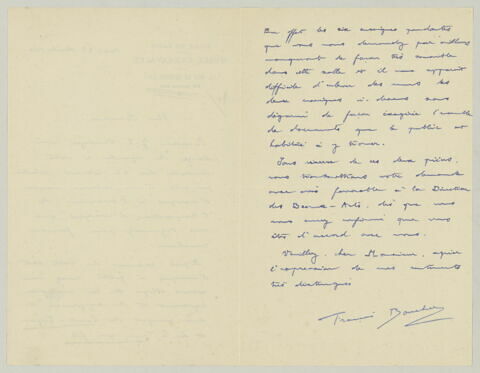 En effet les six enseignes pendantes
que vous nous demandez par ailleurs
manqueront de façon très sensible
dans cette salle et il nous apparaît
difficile d'enlever des murs les
deux enseignes ci-dessus sans
dégarnir de façon exagérée l'ensemble
de documents que le public est
habitué à y trouver.
Sous réserve de ces deux pièces,
nous transmettrons votre demande
avec avis favorable à la Direction
des Beaux-Arts, dès que vous
nous aurez informé que vous
êtes d'accord avec nous.
Veuillez, cher Monsieur, agréer
l'expression de mes sentiments
très distingués
François Boucher